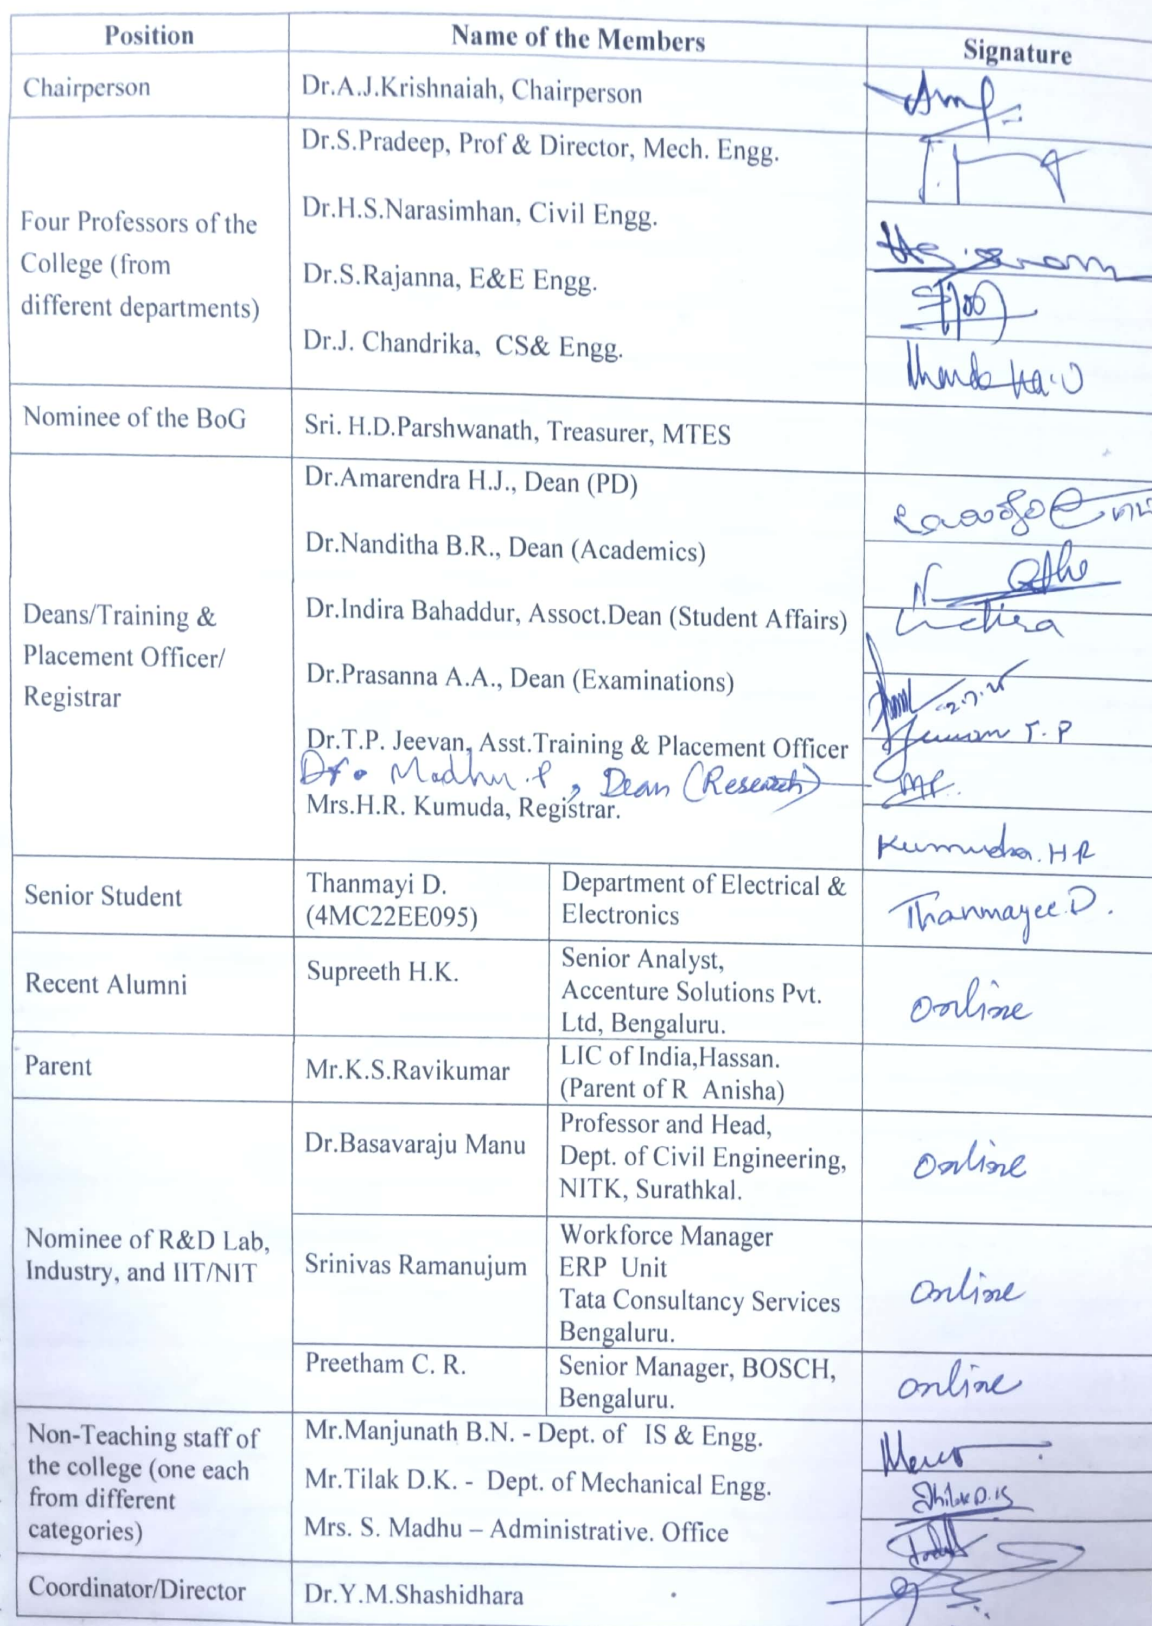 Position Name of the Members Signature
Chairperson Dr.A.J.Krishnaiah, Chairperson
Four Professors of the
College (from
different departments)
Dr.S.Pradeep, Prof & Director, Mech. Engg.
Dr.H.S.Narasimhan, Civil Engg.
Dr.S.Rajanna, E&E Engg.
Dr.J. Chandrika, CS& Engg.
Nominee of the BoG Sri. H.D.Parshwanath, Treasurer, MTES
Deans/Training &
Placement Officer/
Registrar
Dr.Amarendra H.J., Dean (PD)
Dr.Nanditha B.R., Dean (Academics)
Dr.Indira Bahaddur, Assoct.Dean (Student Affairs)
Indira
Dr.Prasanna A.A., Dean (Examinations)
Dr.T.P. Jeevan, Asst.Training & Placement Officer
T.P
Dr. Madhu.P, Dean (Research)
MP.
Mrs.H.R. Kumuda, Registrar.
Kumuda.HR
Senior Student
Thanmayi D.
(4MC22EE095)
Department of Electrical &
Electronics
Thanmayee.D.
Recent Alumni
Supreeth H.K.
Senior Analyst,
Accenture Solutions Pvt.
Ltd, Bengaluru.
online
Parent
Mr.K.S.Ravikumar
LIC of India,Hassan.
(Parent of R Anisha)
Nominee of R&D Lab,
Industry, and IIT/NIT
Dr.Basavaraju Manu
Professor and Head,
Dept. of Civil Engineering,
NITK, Surathkal.
online
Srinivas Ramanujum
Workforce Manager
ERP Unit
Tata Consultancy Services
Bengaluru.
online
Preetham C. R.
Senior Manager, BOSCH,
Bengaluru.
online
Non-Teaching staff of
the college (one each
from different
categories)
Mr.Manjunath B.N. - Dept. of IS & Engg.
Mr.Tilak D.K. - Dept. of Mechanical Engg.
Mrs. S. Madhu – Administrative. Office
Coordinator/Director Dr.Y.M.Shashidhara